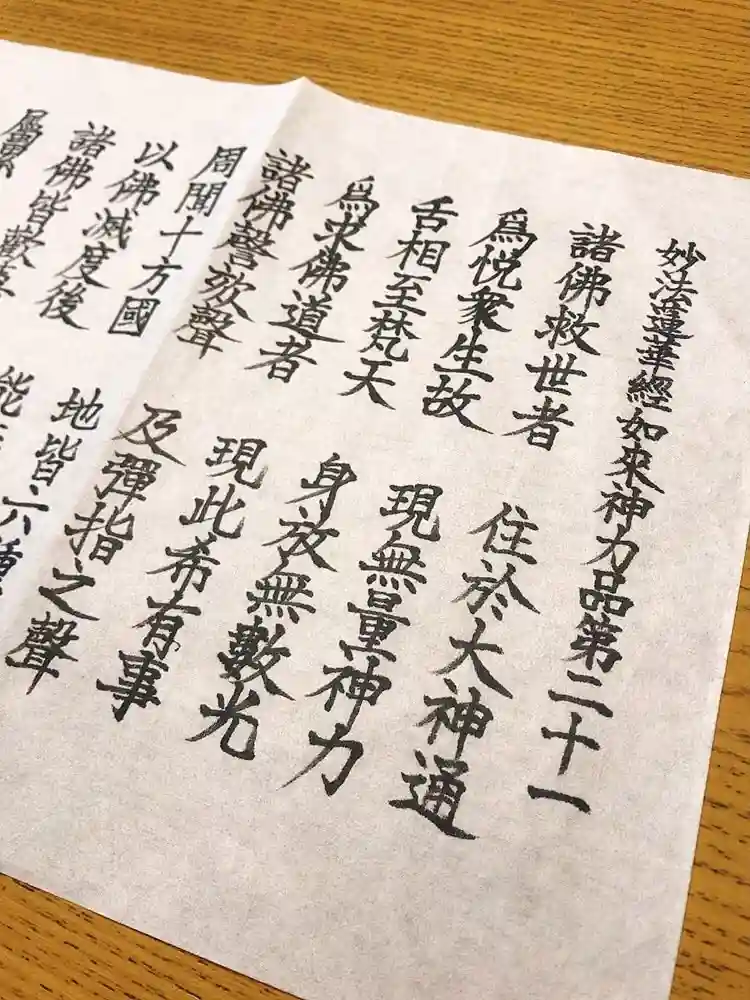 妙法蓮華經如來神力品第二十一
諸佛救世者　住於大神通
爲悦衆生故　現無量神力
舌相至梵天　身放無數光
爲求佛道者　現此希有事
諸佛謦欬聲　及彈指之聲
周聞十方國　地皆六種
以佛滅度後　能
諸佛皆歡
屬累